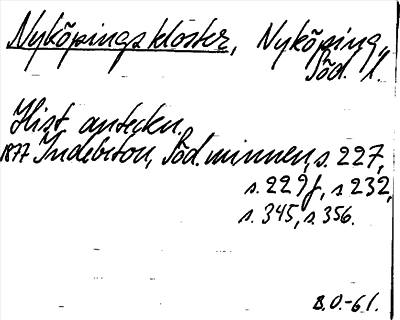 Nyköpings kloster, Nyköping,
Söd. l.
Hist. anteckn.
1877 Indebetou, Söd. minnen, s. 227,
s. 229f, s 232,
s. 345, s. 356.
B.O.-61.